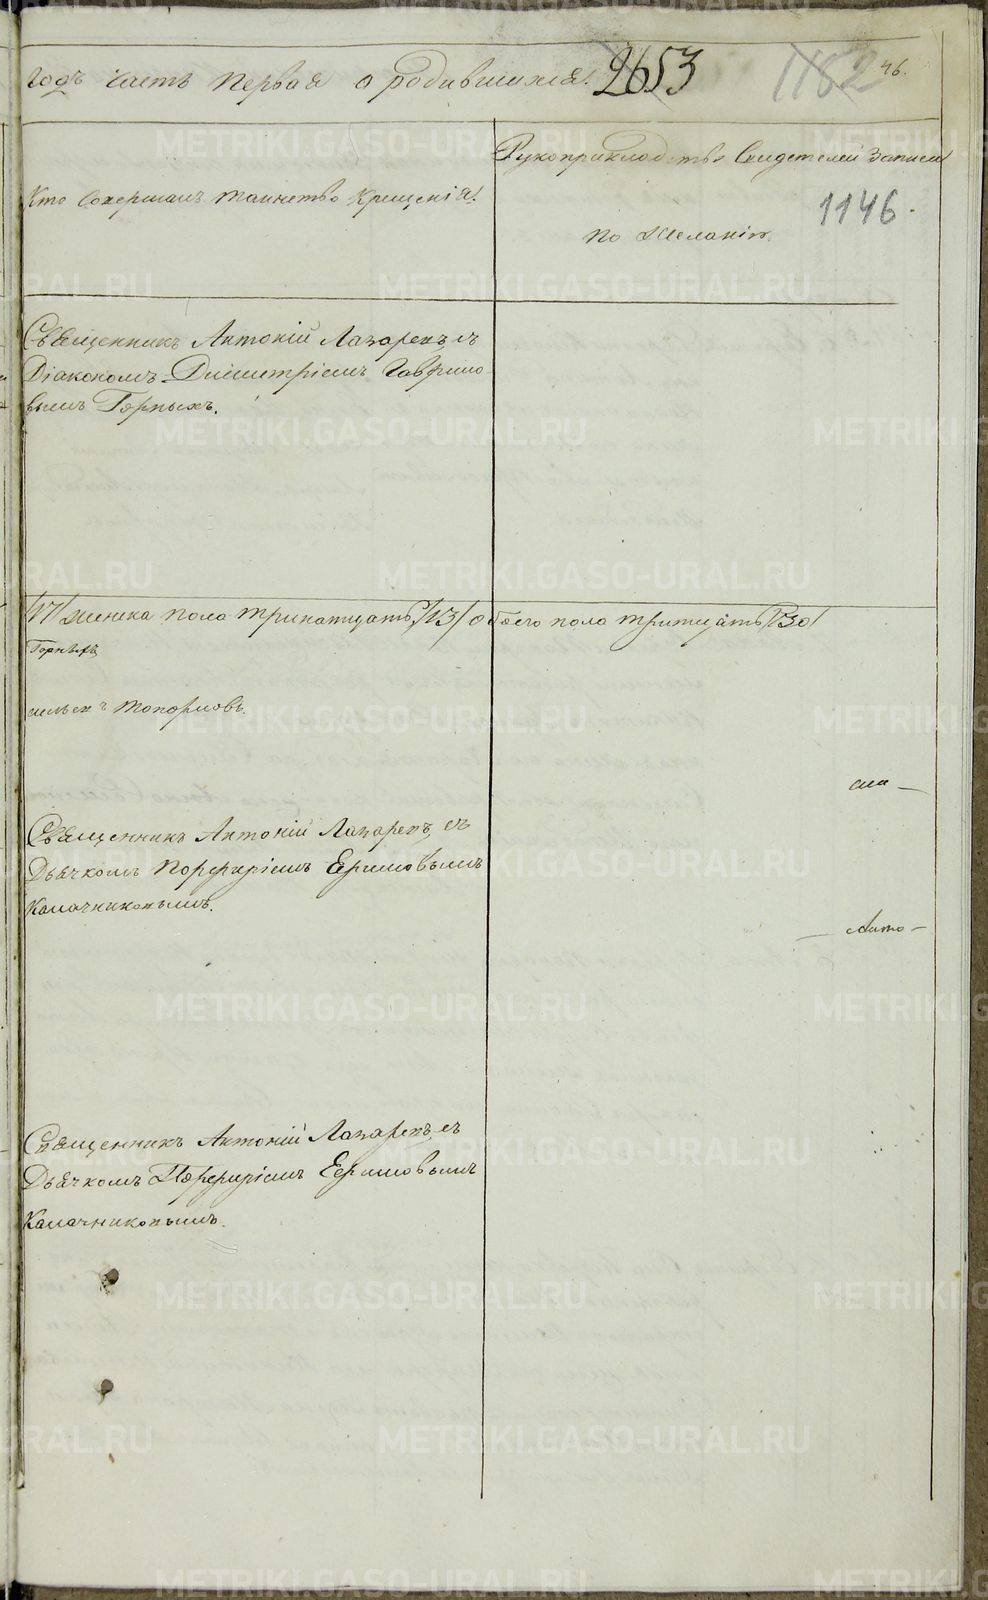 Годъ Часть Первая о родившихся. 2653 1182 46.
Кто Совершалъ таинство Крещенія.
Рукоприкладство Свидетелей записи
по Желанію.
1146.
Священникъ Антоній Лапаревъ, съ
Діакономъ Димитріемъ Гаврило
вымъ Горныхъ.
/17/ женска пола тринатцать /13/ обоего пола тритцать /30/
Горныхъ
Топорковъ.
Священникъ Антоній Лапаревъ, съ
Дьячкомъ Порфиріемъ Ефимовымъ
Калачниковымъ.
— Анто —
Священникъ Антоній Лапаревъ, съ
Дьячкомъ Порфиріемъ Ефимовымъ
Калачниковымъ.
METRIKI.GASO-URAL.RU